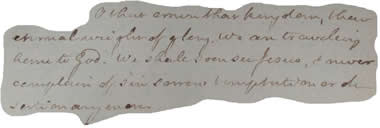 O that crown that kingdom, that
eternal weight of glory. We are traveling
home to God. We shall soon see Jesus, & never
complain of sin sorrow temptation or de
sertion any more